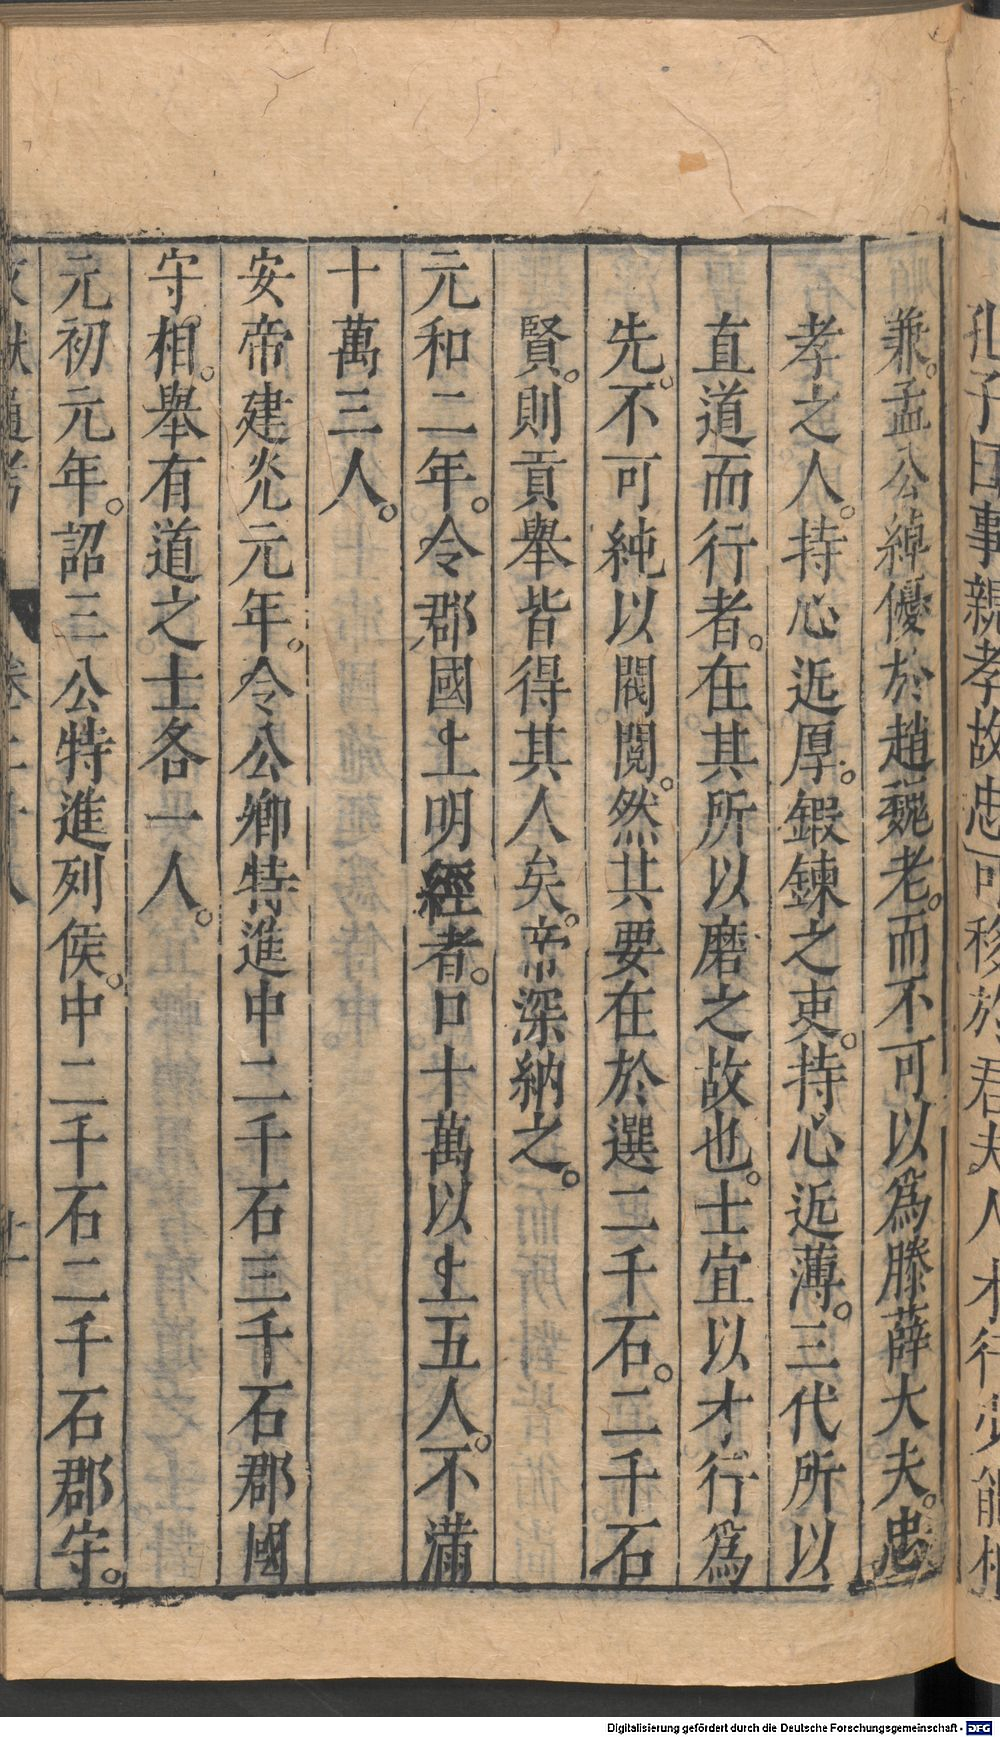 孔子曰事親孝故忠可移於君夫人才行少能相
兼。孟公綽優於趙魏老。而不可以爲滕薛大夫。忠
孝之人。持心近厚。鍛鍊之吏。持心近薄。三代所以
直道而行者。在其所以磨之故也。士宜以才行爲
先。不可純以閥閱。然其要在於選二千石。二千石
賢。則貢舉皆得其人矣。帝深納之。
元和二年。令郡國上明經者。口十萬以上五人。不滿
十萬三人。
安帝建光元年。令公卿特進中二千石三千石郡國
守相。舉有道之士各一人。
元初元年。詔三公特進列侯。中二千石二千石郡守。
文獻通考 卷二十八 十一
Digitalisierung gefördert durch die Deutsche Forschungsgemeinschaft - DFG